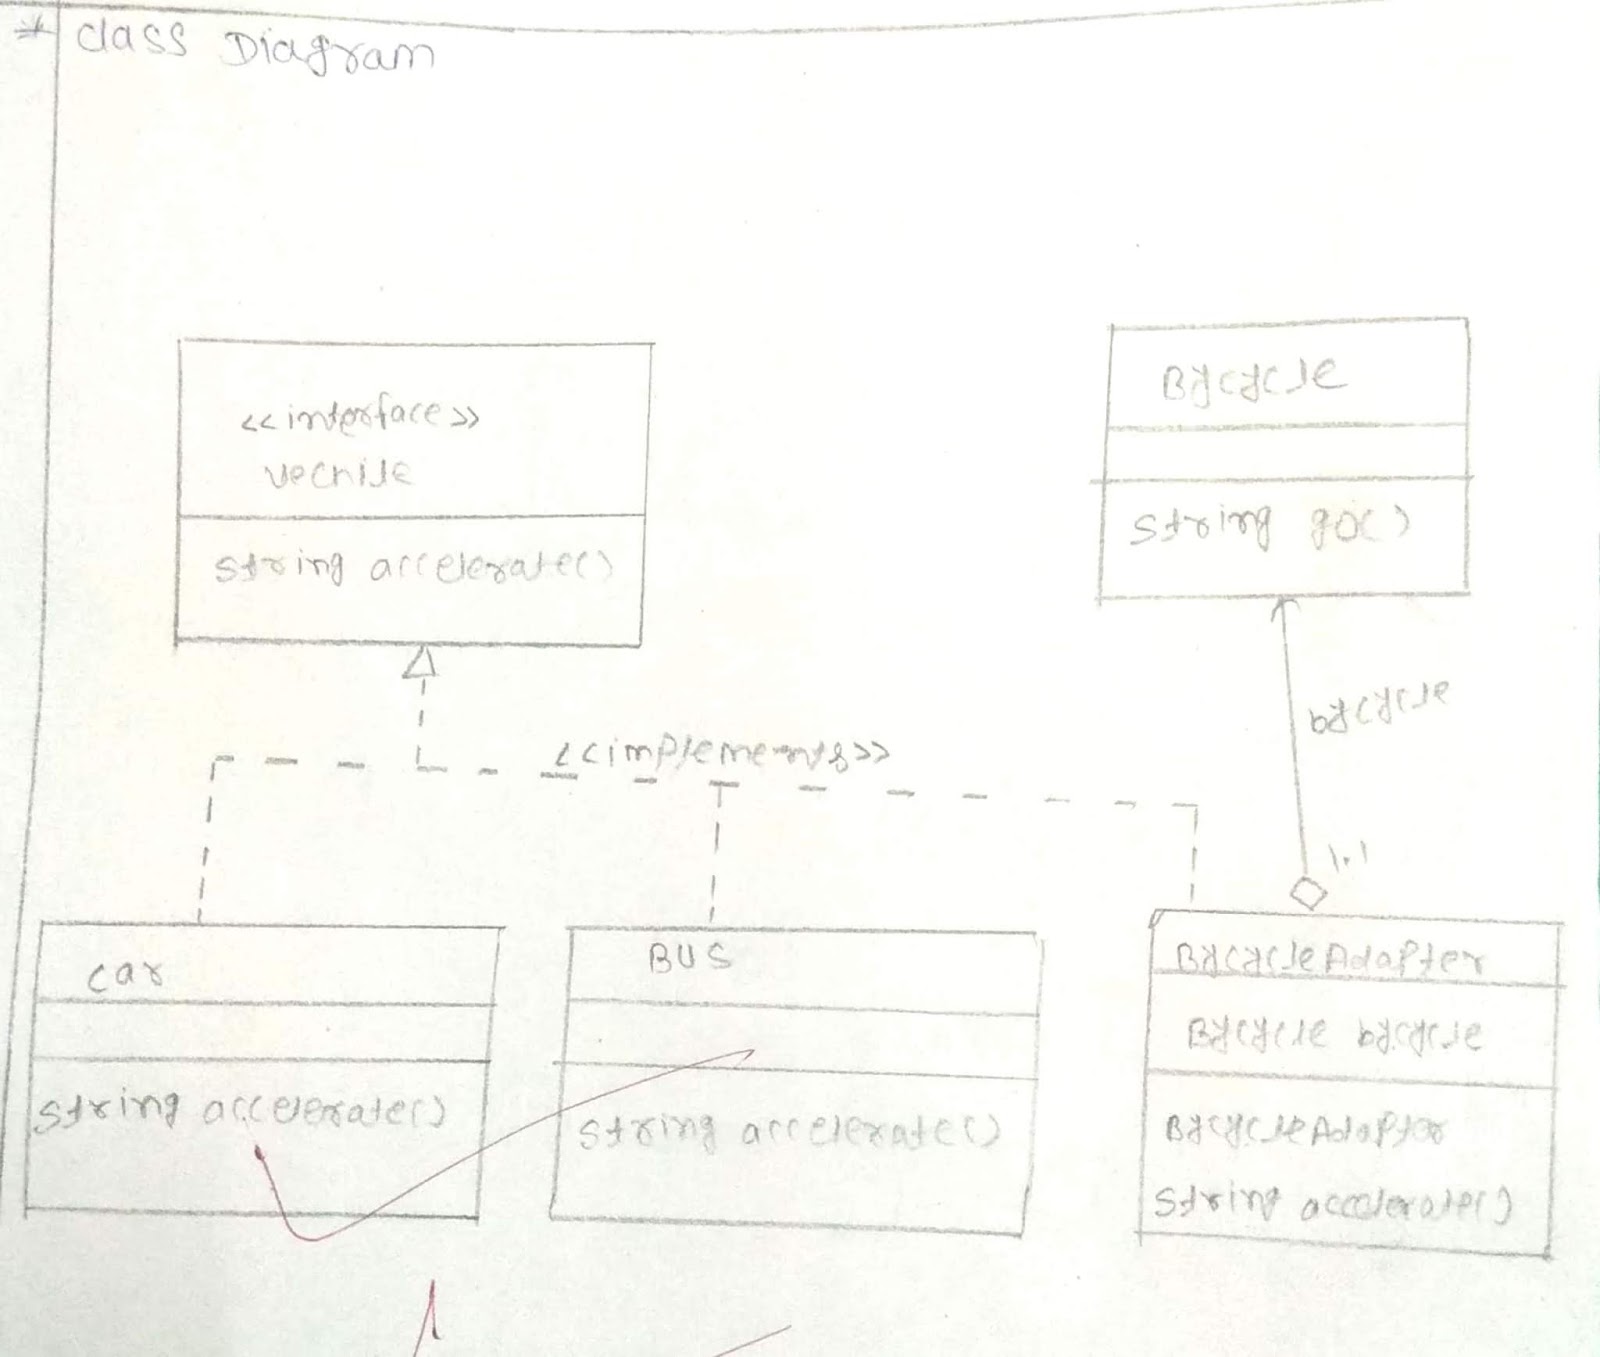 * Class Diagram
<<interface>>
vechile
string accelerate()
Bycycle
string go()
bycycle
<<implements>>
1..1
car
string accelerate()
BUS
string accelerate()
BycycleAdapter
Bycycle bycycle
BycycleAdapter
string accelerate()